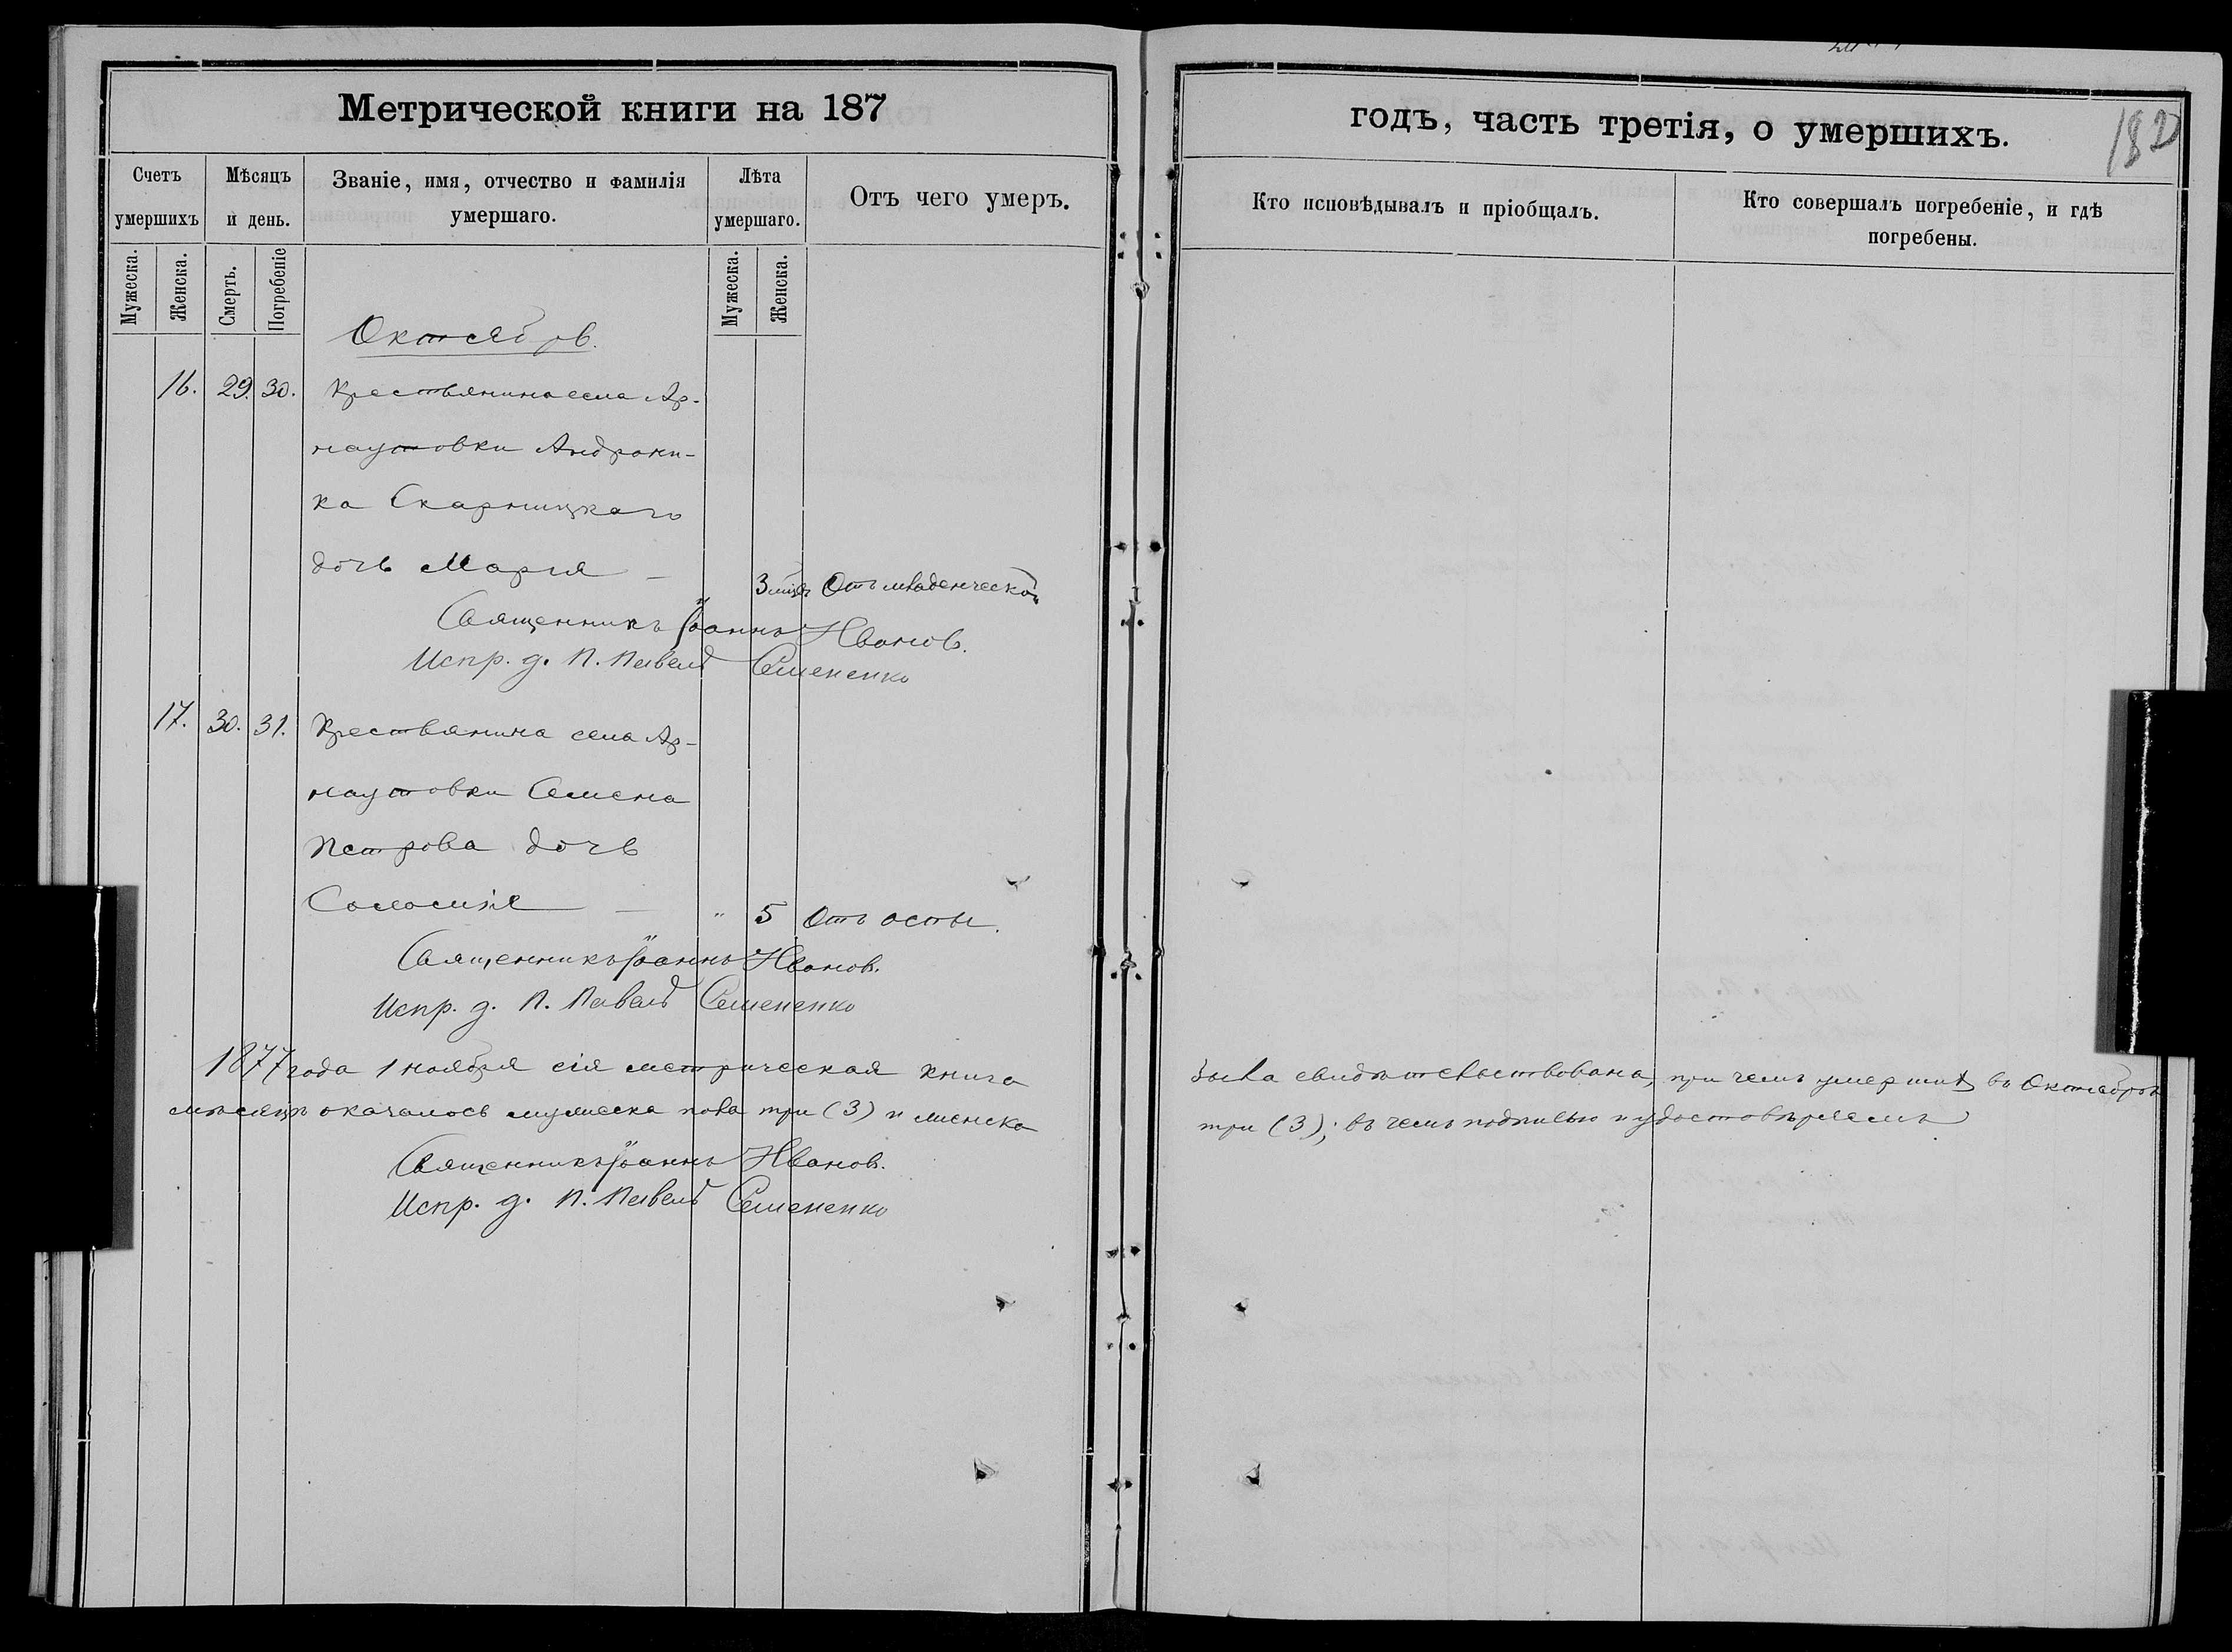 Метрической книги на 187
годъ, часть третія, о умершихъ.
182
Счетъ умершихъ
Мѣсяцъ и день.
Званіе, имя, отчество и фамилія умершаго.
Лѣта умершаго.
Отъ чего умеръ.
Кто исповѣдывалъ и пріобщалъ.
Кто совершалъ погребеніе, и гдѣ погребены.
Мужеска.
Женска.
Смерть.
Погребеніе
Мужеска.
Женска.
Октябрь.
16. 29. 30. Крестьянина села Ар-
наутовки Андрони-
ка Скарницкаго
дочь Марія — 3 мѣс. Отъ младенческой
Священникъ Іоаннъ Ивановъ.
Испр. д. П. Павелъ Семененко
17. 30. 31. Крестьянина села Ар-
наутовки Семена
Петрова дочь
Соломія — " 5 Отъ оспы.
Священникъ Іоаннъ Ивановъ.
Испр. д. П. Павелъ Семененко
1877 года 1 ноября сія метрическая книга
была свидѣтельствована, при чемъ умершихъ въ Октябрѣ
мѣсяцѣ оказалось мужеска пола три (3) и женска
три (3); въ чемъ подписью и удостовѣряемъ
Священникъ Іоаннъ Ивановъ.
Испр. д. П. Павелъ Семененко